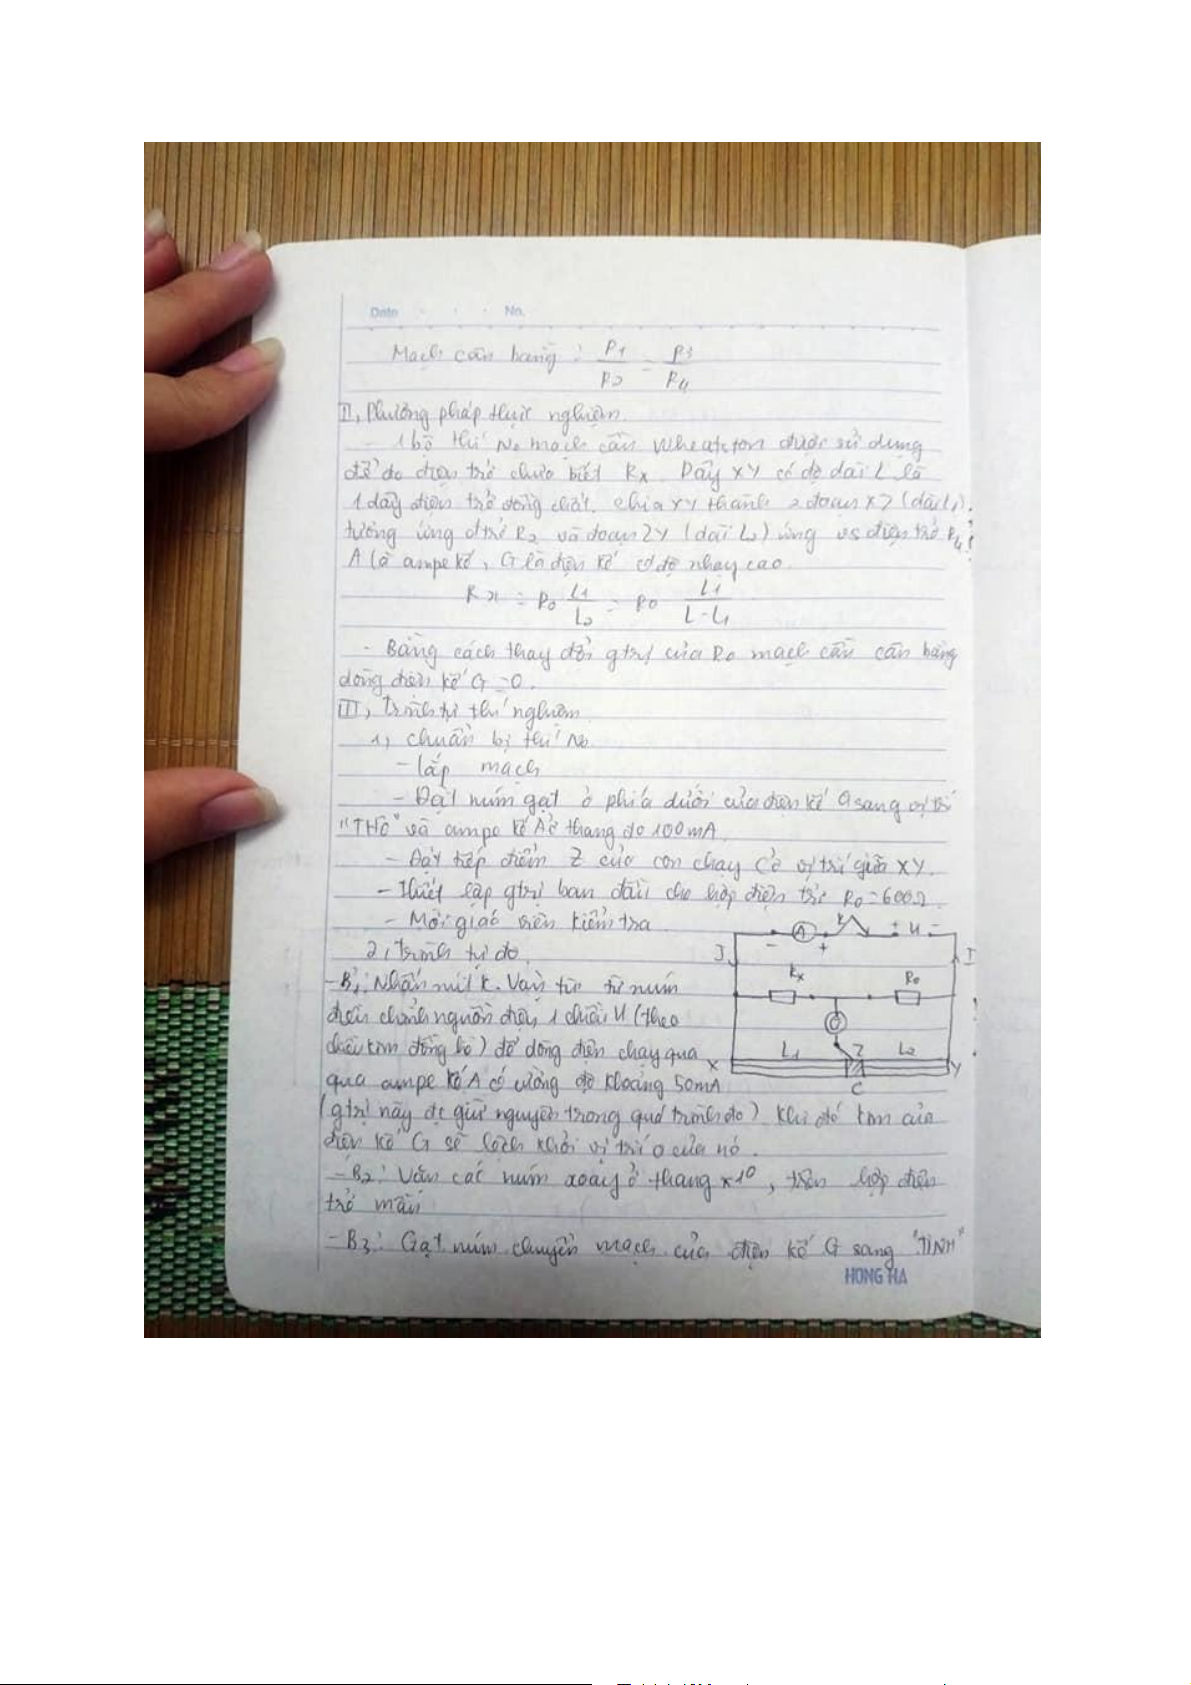 Date . . . No.
Mạch cân bằng : R1/R2 = R3/R4
II, Phương pháp thực nghiệm
- 1 bộ thí No mạch cầu Wheatston được sử dụng
để đo điện trở chưa biết Rx. Dây XY có độ dài L là
1 dây điện trở đồng chất. chia XY thành 2 đoạn XZ (dài L1).
tương ứng đtrở R2 và đoạn ZY (dài L2) ứng vs điện trở R4.
A là ampe kế, G là điện kế có độ nhạy cao.
Rx = R0 L1/L2 = R0 L1/L-L1
- Bằng cách thay đổi gtrị của R0 mạch cầu cân bằng
dòng điện kế G = 0.
III, Trình tự thí nghiệm
1, chuẩn bị thí No
- lắp mạch
- Đặt núm gạt ở phía dưới của điện kế G sang vị trí
"THÔ" và ampe kế A ở thang đo 100mA
- Đặt tiếp điểm Z của con chạy C ở vị trí giữa XY.
- Thiết lập gtrị ban đầu cho hộp điện trở R0 = 600Ω
- Mời giáo viên kiểm tra
2, trình tự đo.
- B1: Nhấn nút K. Vặn từ từ núm
điều chỉnh nguồn điện 1 chiều U (theo
chiều kim đồng hồ) để dòng điện chạy qua
qua ampe kế A có cường độ khoảng 50mA
(gtrị này đc giữ nguyên trong quá trình đo) Khi đó kim của
điện kế G sẽ lệch khỏi vị trí 0 của nó.
- B2: Vặn các núm xoay ở thang x10, trên hộp điện
trở mẫu
- B3: Gạt núm chuyển mạch của điện kế G sang "TINH"
A K + U -
- +
J I
Rx R0
G
L1 Z L2
X Y
C
HONG HA